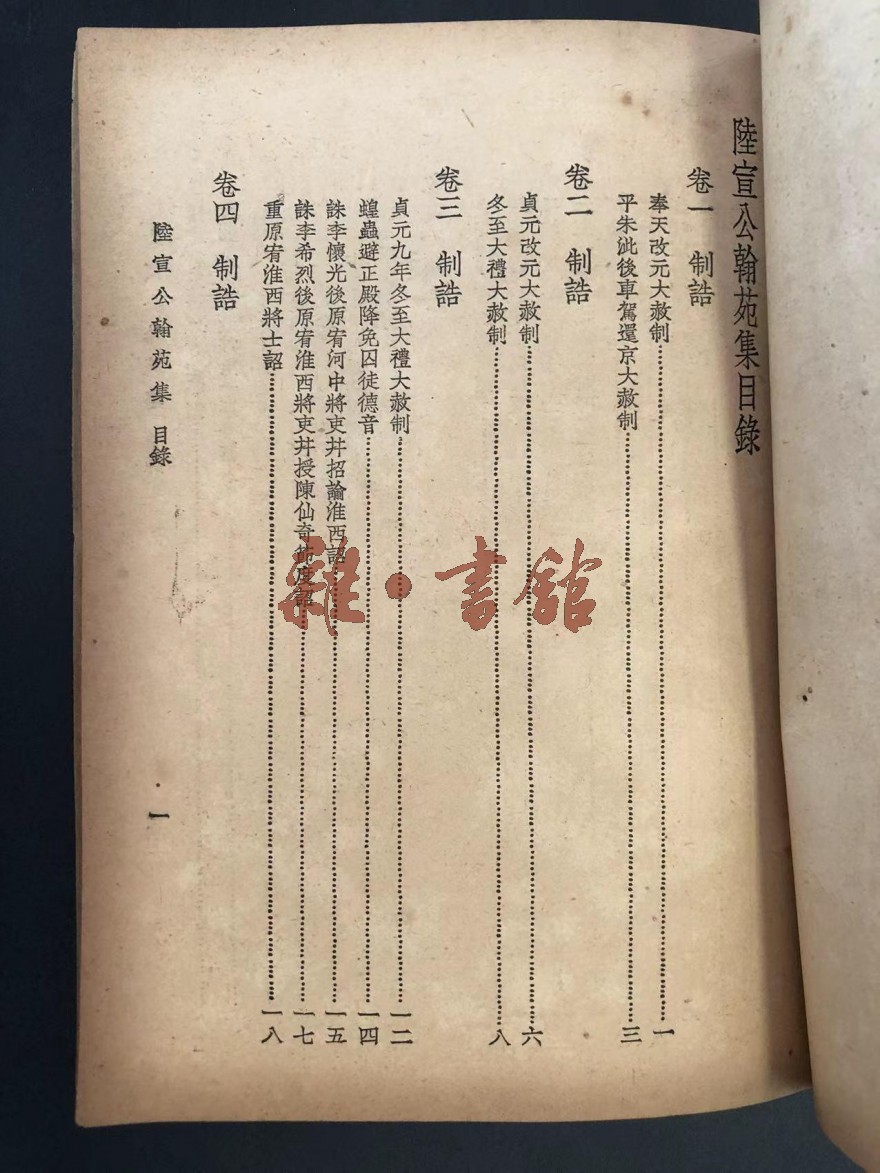 陸宣公翰苑集目錄
卷一 制誥
奉天改元大赦制……一
平朱泚後車駕還京大赦制……三
卷二 制誥
貞元改元大赦制……六
冬至大禮大赦制……八
卷三 制誥
貞元九年冬至大禮大赦制……一二
蝗蟲避正殿降免囚徒德音……一四
誅李懷光後原宥河中將吏幷招諭淮西詔……一五
誅李希烈後原宥淮西將吏幷授陳仙奇節度詔……一七
重原宥淮西將士詔……一八
卷四 制誥
陸宣公翰苑集 目錄
一
雜·書館